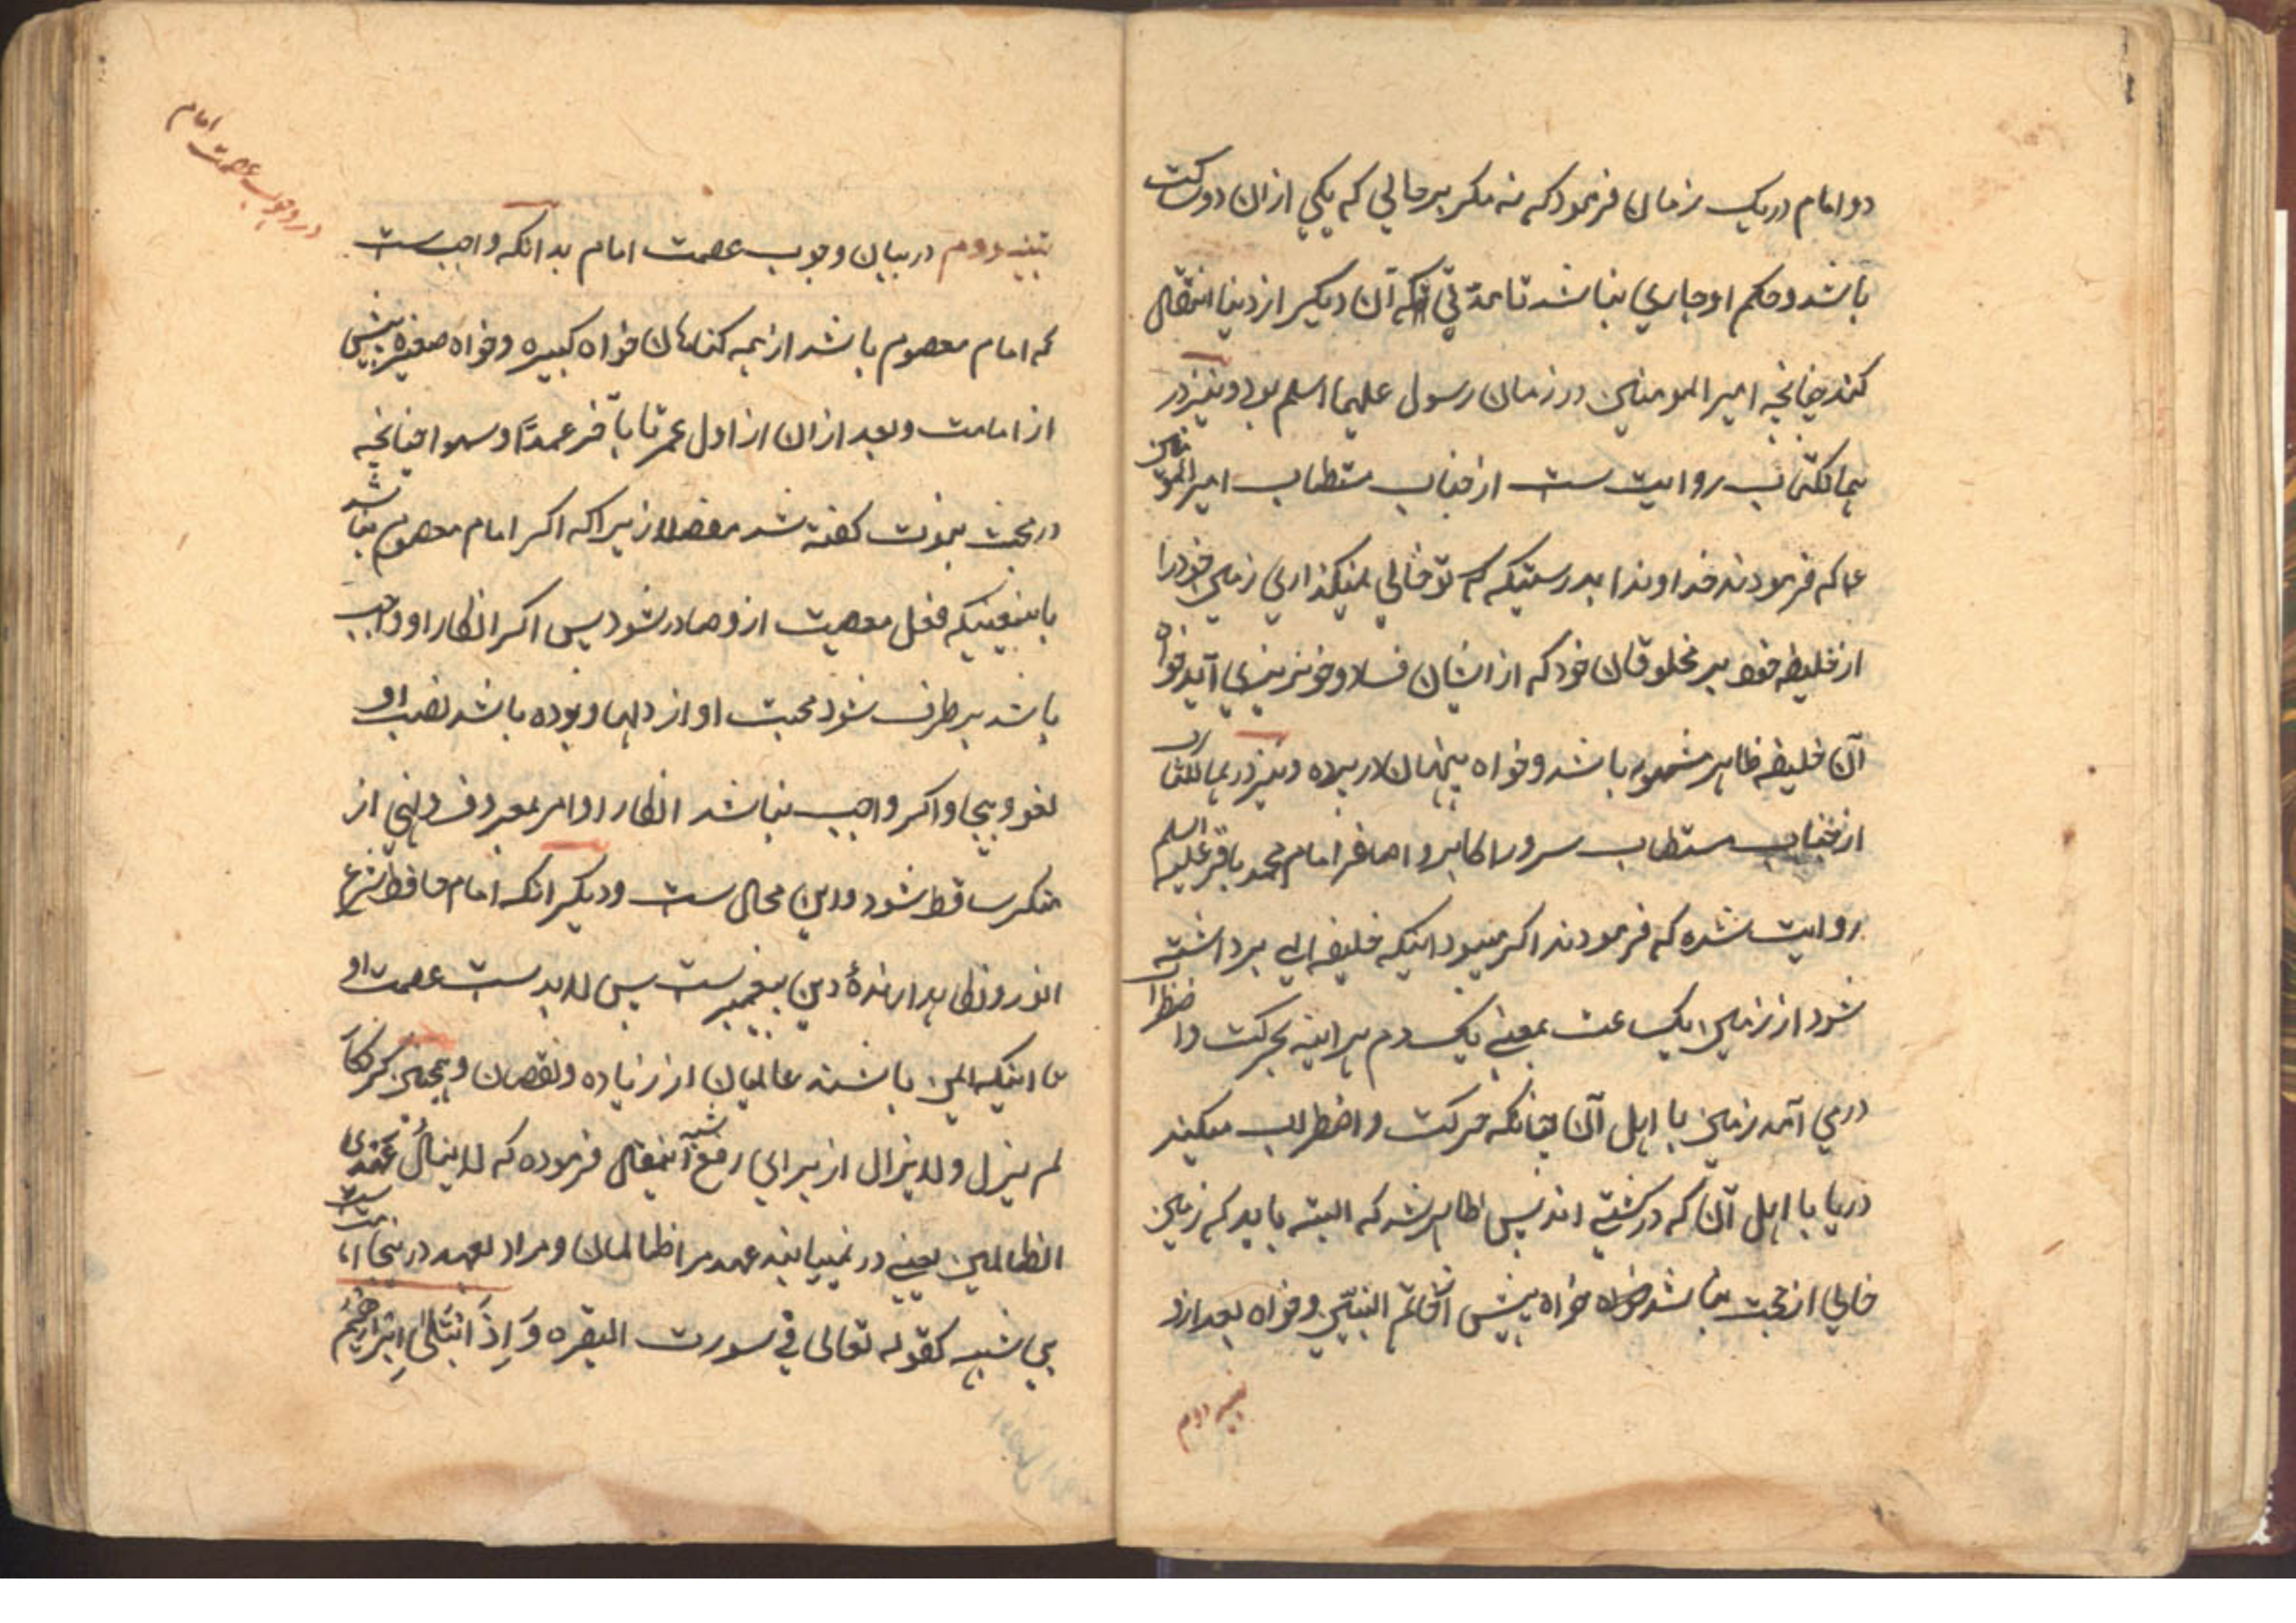 دو امام در یک زمان فرمود که نه مکر بر حالی که یکی از ان دو ساکت
باشد و حکم او جاری نباشد تا مدتی که آن دیکر از دنیا انتقال
کند چنانچه امیر المومنین در زمان رسول علیهما السلم بود و نیز در
همانکتاب روایت ست از جناب مستطاب امیر المومنین
ع که فرمودند خداوندا بدرستیکه که تو خالی نمیکذاری زمین خود را
از خلیفه خود بر مخلوقان خود که از ایشان فساد و خونریزی آید خواه
آن خلیفه ظاهر مشهور باشد و خواه پنهان در پرده و نیز در همانکتاب
از جناب مستطاب سرور اکابر و اصاغر امام محمد باقر علیه السلم
روایت شده که فرمودند اکر میبود اینکه خلیفه الهی برداشته
شود از زمین یکساعت بمعنی یکدم هراینه بحرکت و اضطراب
درمی آمد زمین با اهل آن چنانکه حرکت و اضطراب میکند
دریا با اهل آن که در کشتی اند پس ظاهر شد که البته باید که زمین
خالی از حجت نباشد خواه پیش از خاتم النبیین و خواه بعد ازو
تنبیه دوم
در وجوب عصمت امام
تنبیه دوم در بیان وجوب عصمت امام بدانکه واجبست
که امام معصوم باشد از همه کناهان خواه کبیره و خواه صغیره پیش
از امامت و بعد از ان از اول عمر تا بآخر عمدًا و سهوا چنانچه
در بحث نبوت کفته شد مفصلا زیراکه اکر امام معصوم نباشد
باینمعنیکه فعل معصیت ازو صادر شود پس اکر انکار او واجب
باشد برطرف شود محبت او از دلها و بوده باشد نصب او
لغو و بیجا و اکر واجب نباشد انکار او امر بمعروف و نهی از
منکر ساقط شود و این محال ست و دیکر انکه امام حافظ شرع
انور و نکاهدارندهٔ دین پیغمبرست پس لابدست عصمت او
تا اینکه ایمن باشند عالمیان از زیاده و نقصان و همچنین
لم یزل و لایزال از برای رفع آنمقال فرموده که لاینالُ عهدی
الظالمین یعنی در نمییابد عهد مرا ظالمان و مراد بعهد در اینجا امامت ست
بی شبهه کقوله تعالی فی سورت البقره وَ اِذ ابْتَلیٰ ابراهیمَ